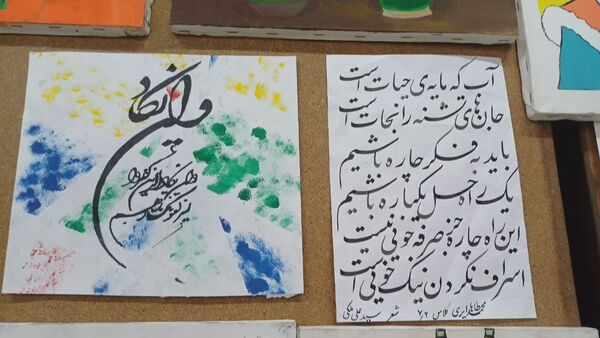 آب که مایه ی حیات است
جان های تشنه را نجات است
باید به فکر چاره باشیم
یک راه حل یکباره باشیم
این راه چاره جز صرفه جویی نیست
اسراف نکردن نیک خویی است
کلاس ۷/۲ شعر سید علی ملکی
وان یکاد
وان یکاد الذین کفروا